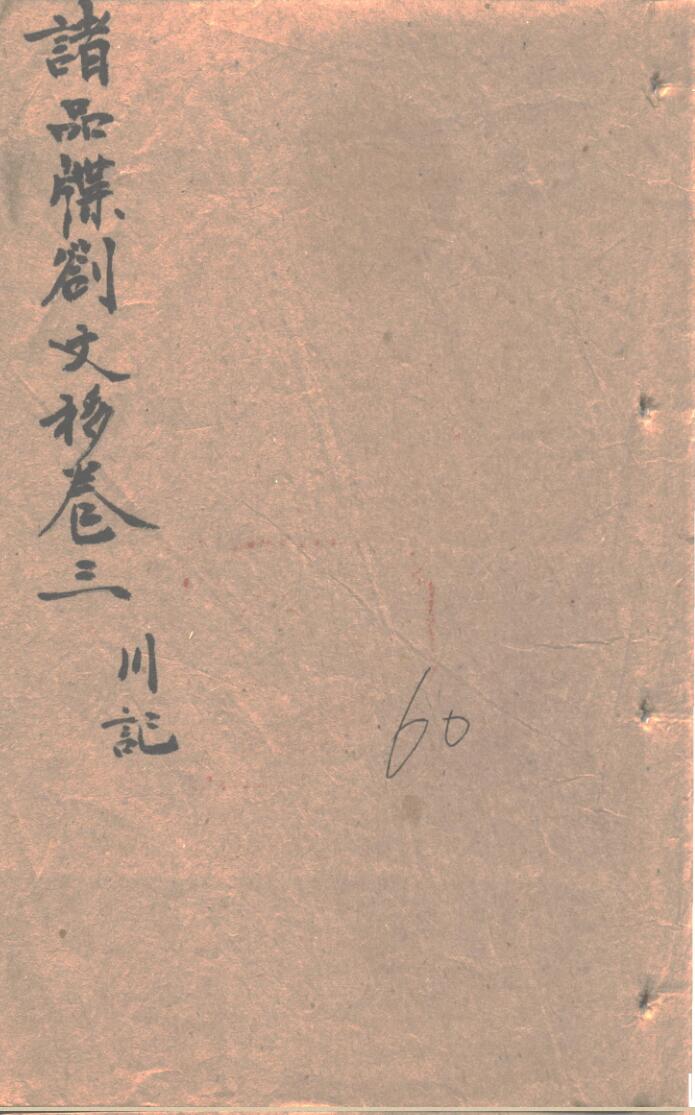 諸品牒劄文移卷三
川記
60